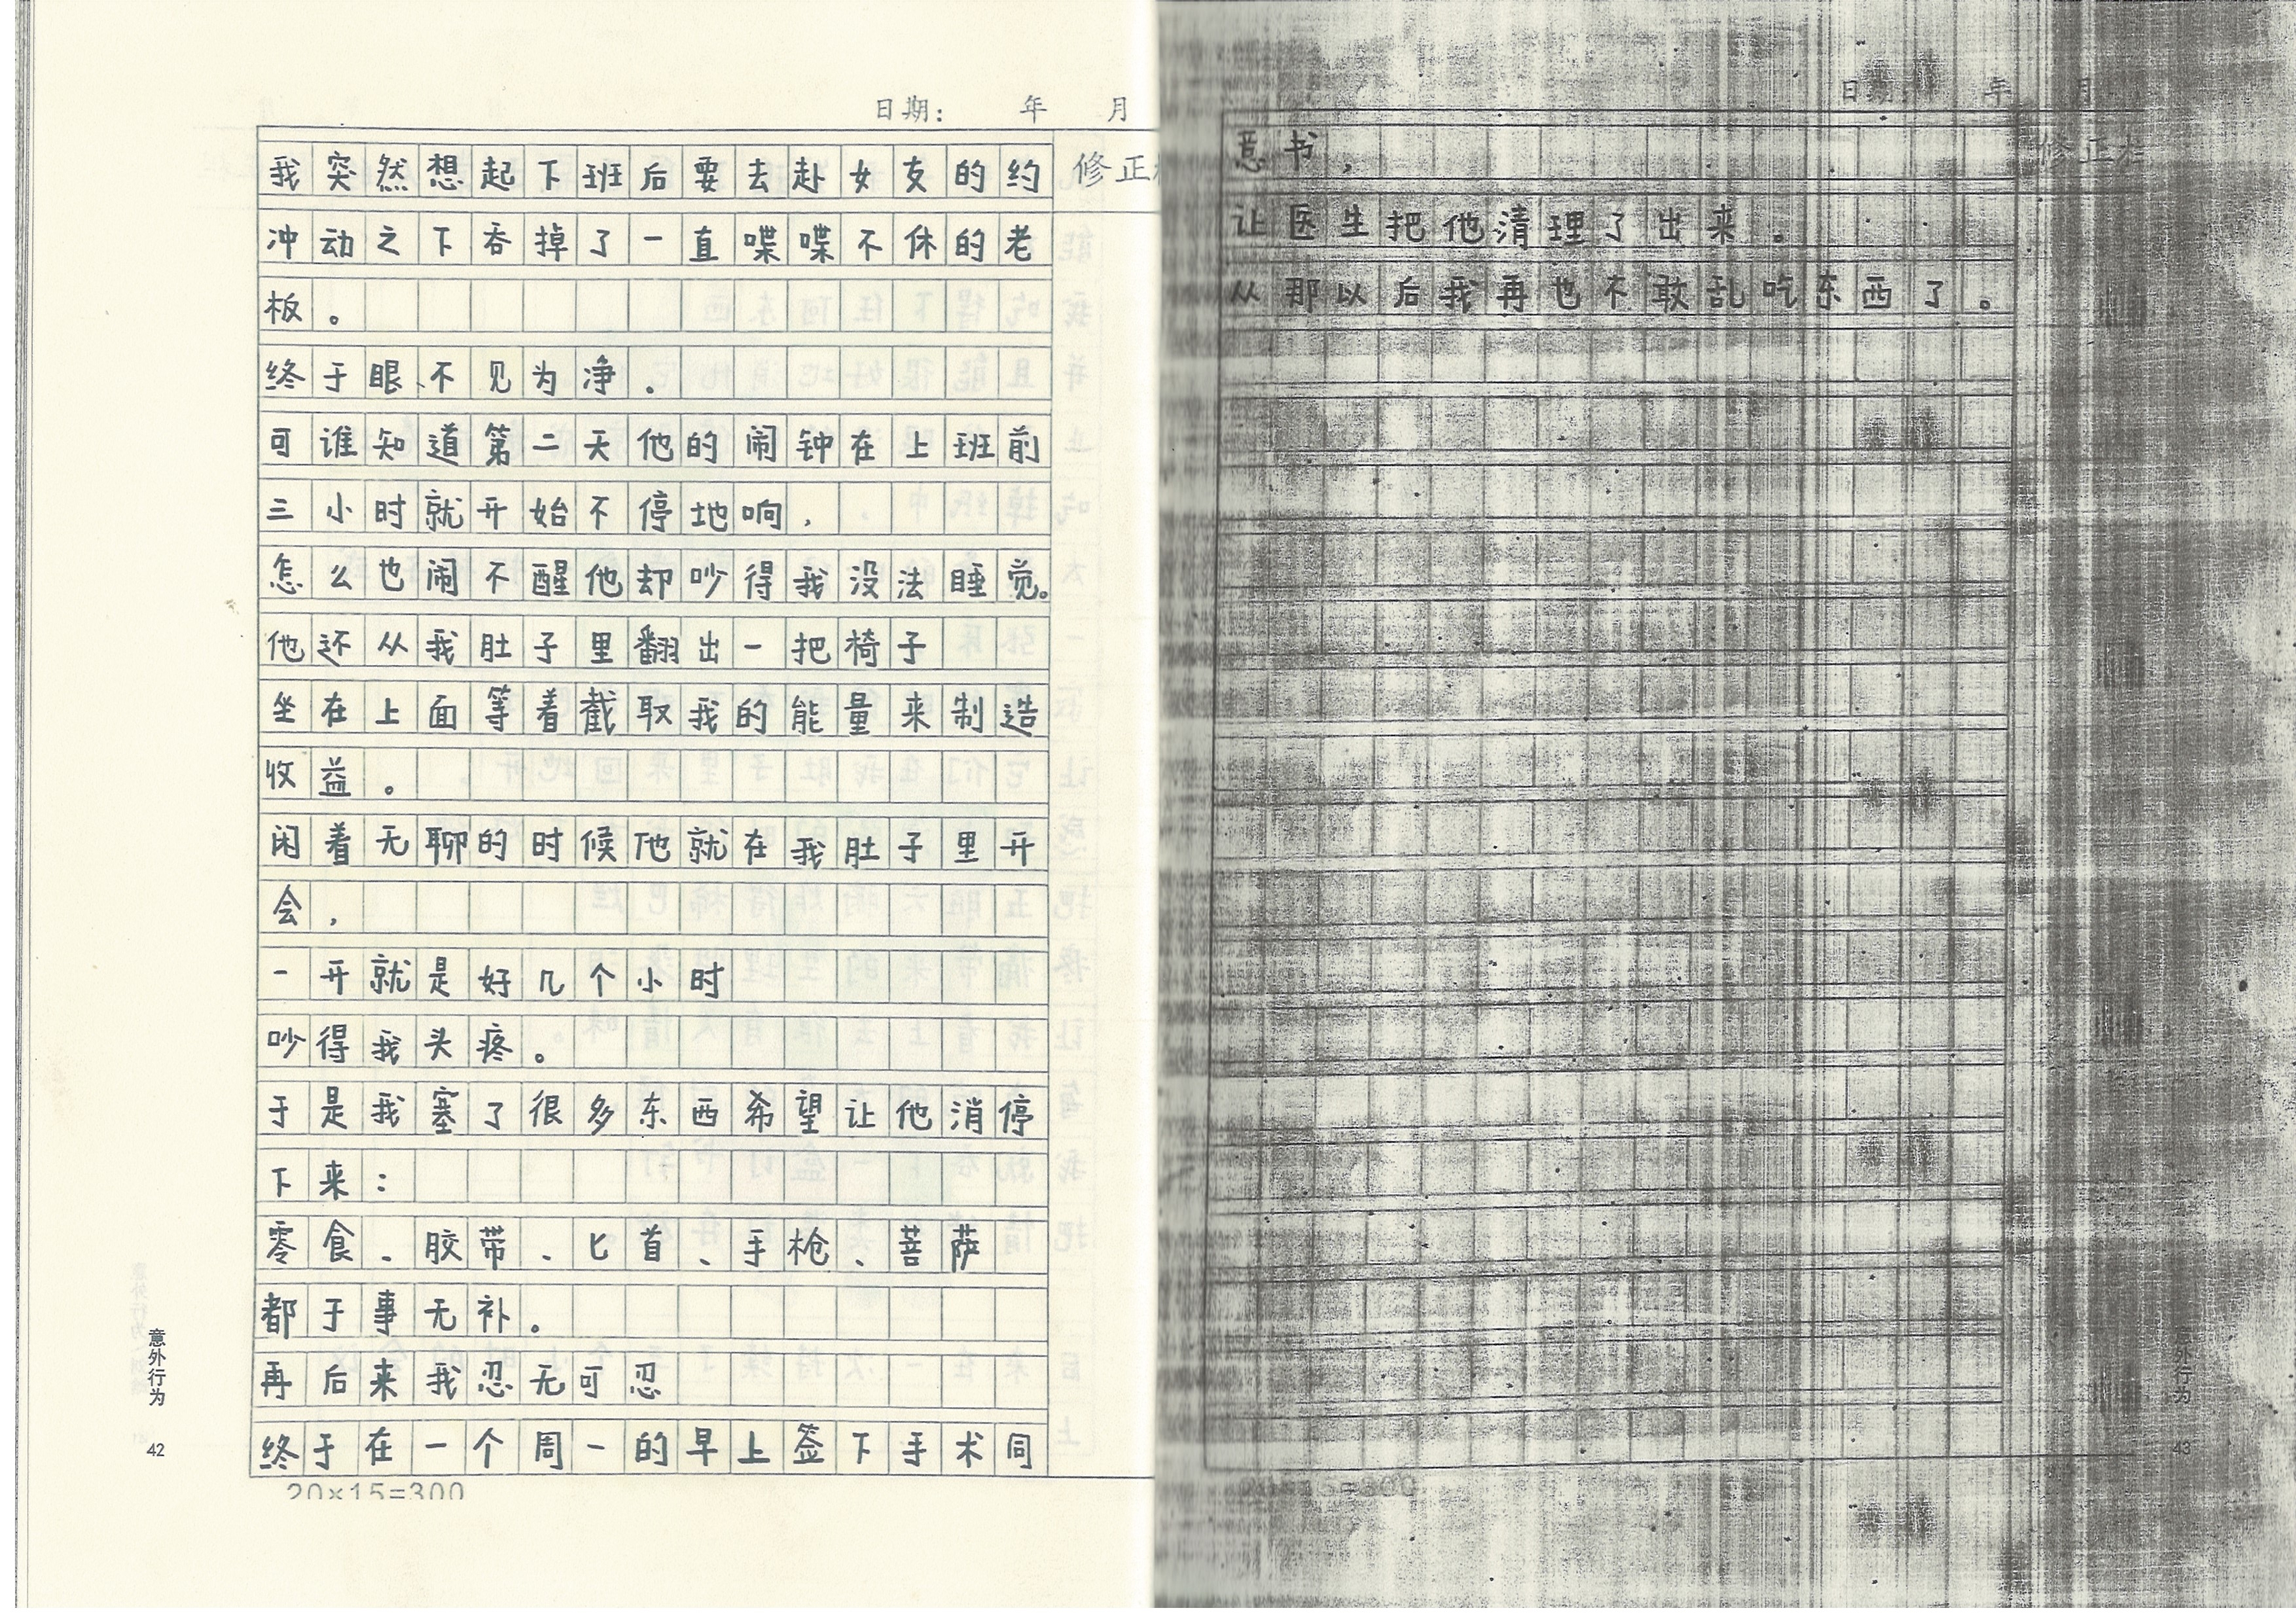 日期： 年 月
修正
我突然想起下班后要去赴女友的约
冲动之下吞掉了一直喋喋不休的老
板。
终于眼不见为净。
可谁知道第二天他的闹钟在上班前
三小时就开始不停地响，
怎么也闹不醒他却吵得我没法睡觉。
他还从我肚子里翻出一把椅子
坐在上面等着截取我的能量来制造
收益。
闲着无聊的时候他就在我肚子里开
会，
一开就是好几个小时
吵得我头疼。
于是我塞了很多东西希望让他消停
下来：
零食、胶带、匕首、手枪、菩萨
都于事无补。
再后来我忍无可忍
终于在一个周一的早上签下手术同
20×15=300
意外行为
42
日期： 年 月
修正
意书，
让医生把他清理了出来。
从那以后我再也不敢乱吃东西了。
=300
外行为
43